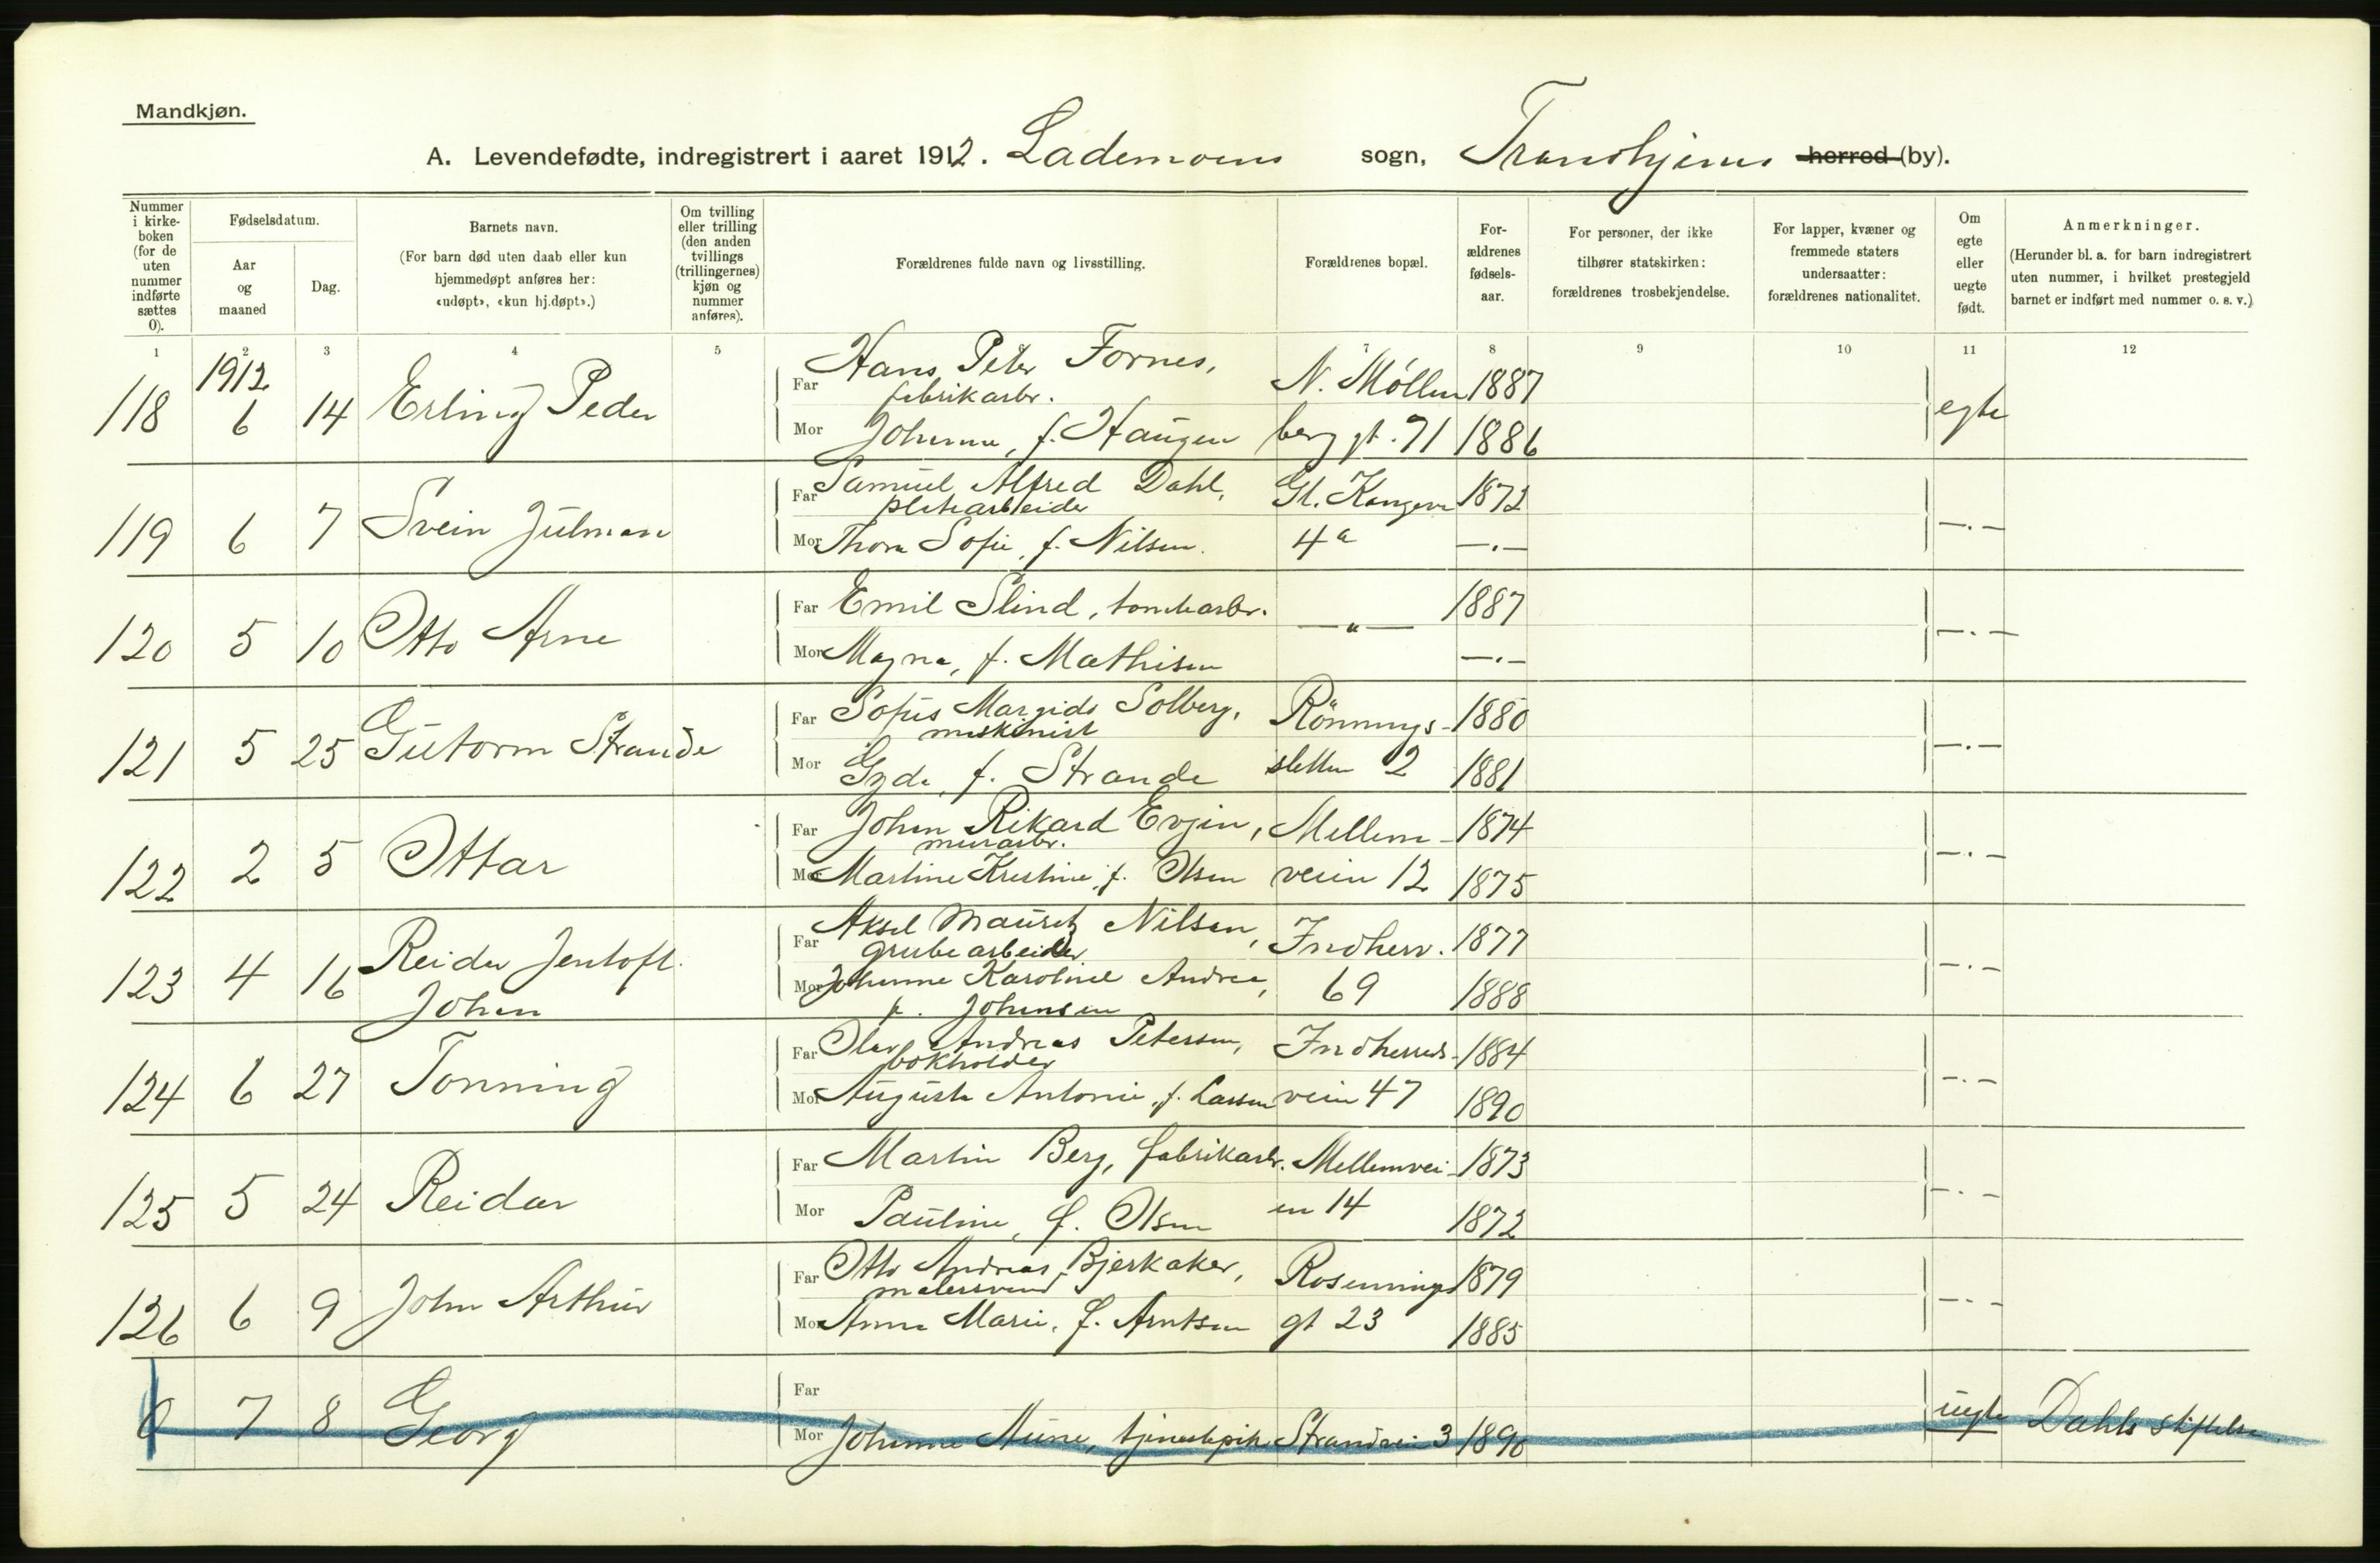 Mandkjøn.
A. Levendefødte, indregistrert i aaret 1912. Lademoens sogn, Trondhjems herred (by).
Nummer i kirke-boken (for de uten nummer indførte sættes 0).
Fødselsdatum.
Aar og maaned
Dag.
Barnets navn.
(For barn død uten daab eller kun hjemmedøpt anføres her: «udøpt», «kun hj.døpt».)
Om tvilling eller trilling (den anden tvillings (trillingernes) kjøn og nummer anføres).
Forældrenes fulde navn og livsstilling.
Forældrenes bopæl.
For-ældrenes fødsels-aar.
For personer, der ikke tilhører statskirken: forældrenes trosbekjendelse.
For lapper, kvæner og fremmede staters undersaatter: forældrenes nationalitet.
Om egte eller uegte født.
Anmerkninger.
(Herunder bl. a. for barn indregistrert uten nummer, i hvilket prestegjeld barnet er indført med nummer o. s. v.)
1 2 3 4 5 7 8 9 10 11 12
1912
118 6 14 Erling Peder Far Hans Peter Fornes, N. Møllen 1887 egte
fabrikarbr.
Mor Johanna, f. Haugen berg gt. 71 1886
119 6 7 Svein Julman Far Samuel Alfred Dahl, Gl. Kongev 1872 —.—
platearbeider
Mor Thora Sofie, f. Nilsen. 4a —.—
120 5 10 Otto Arne Far Emil Slind, tomtearbr. —"— 1887 —.—
Mor Magna, f. Mathisen —.—
121 5 25 Gutorm Strande Far Sofus Margido Solberg, Rönnings- 1880 —.—
maskinist
Mor Gyda, f. Strande sletten 2 1881
122 2 5 Ottar Far Johan Rikard Evjen, Mellem- 1874 —.—
murarbr.
Mor Martine Kristine, f. Olsen veien 12 1875
123 4 16 Reidar Jentoft Far Aksel Mauritz Nilsen, Indherr. 1877 —.—
Johan grubearbeider
Mor Johanne Karoline Andrea, 69 1888
f. Johansen
124 6 27 Tonning Far Olav Andreas Petersen, Indherreds- 1884 —.—
bokholder
Mor Augusta Antonie, f. Larsen veien 47 1890
125 5 24 Reidar Far Martin Berg, fabrikarbr. Mellemvei- 1873 —.—
Mor Pauline, f. Olsen en 14 1872
126 6 9 John Arthur Far Otto Andreas Bjerkaker, Rosenborgs 1879 —.—
malersvend
Mor Anna Marie, f. Arntsen gt 23 1885
0 7 8 Georg Far
Mor Johanna Aune, tjenestepike Strandvei 3 1890 uegte Dahls Stiftelse